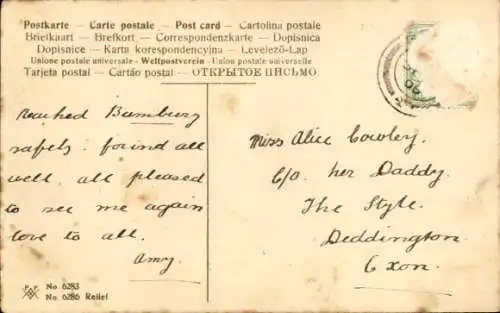 Postkarte — Carte postale — Post card — Cartolina postale
Briefkaart — Brefkort — Correspondenzkarte — Dopisnica
Dopisnice — Karta korespondencyjna — Levelező-Lap
Unione postale universale - Weltpostverein - Union postale universelle
Tarjeta postal — Cartão postal — ОТКРЫТОЕ ПИСЬМО.
Reached Bambury
safely. found all
well. all pleased
to see me again
love to all.
Amy.
No. 6283
No. 6286 Relief
Miss Alice Cowley.
C/o her Daddy.
The Style.
Deddington.
Oxon.